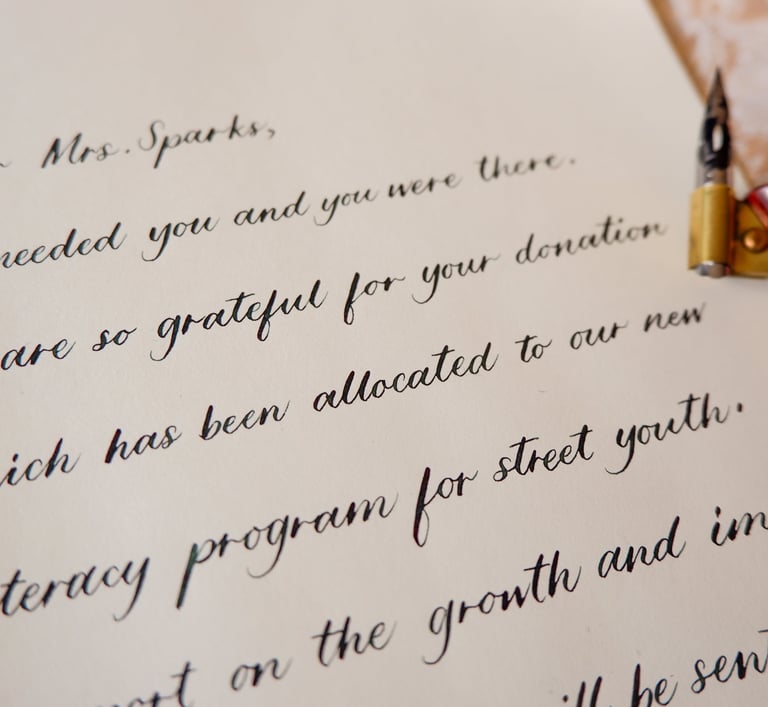 Mrs. Sparks,
needed you and you were there.
are so grateful for your donation
ich has been allocated to our new
teracy program for street youth.
ort on the growth and im
ill be sent